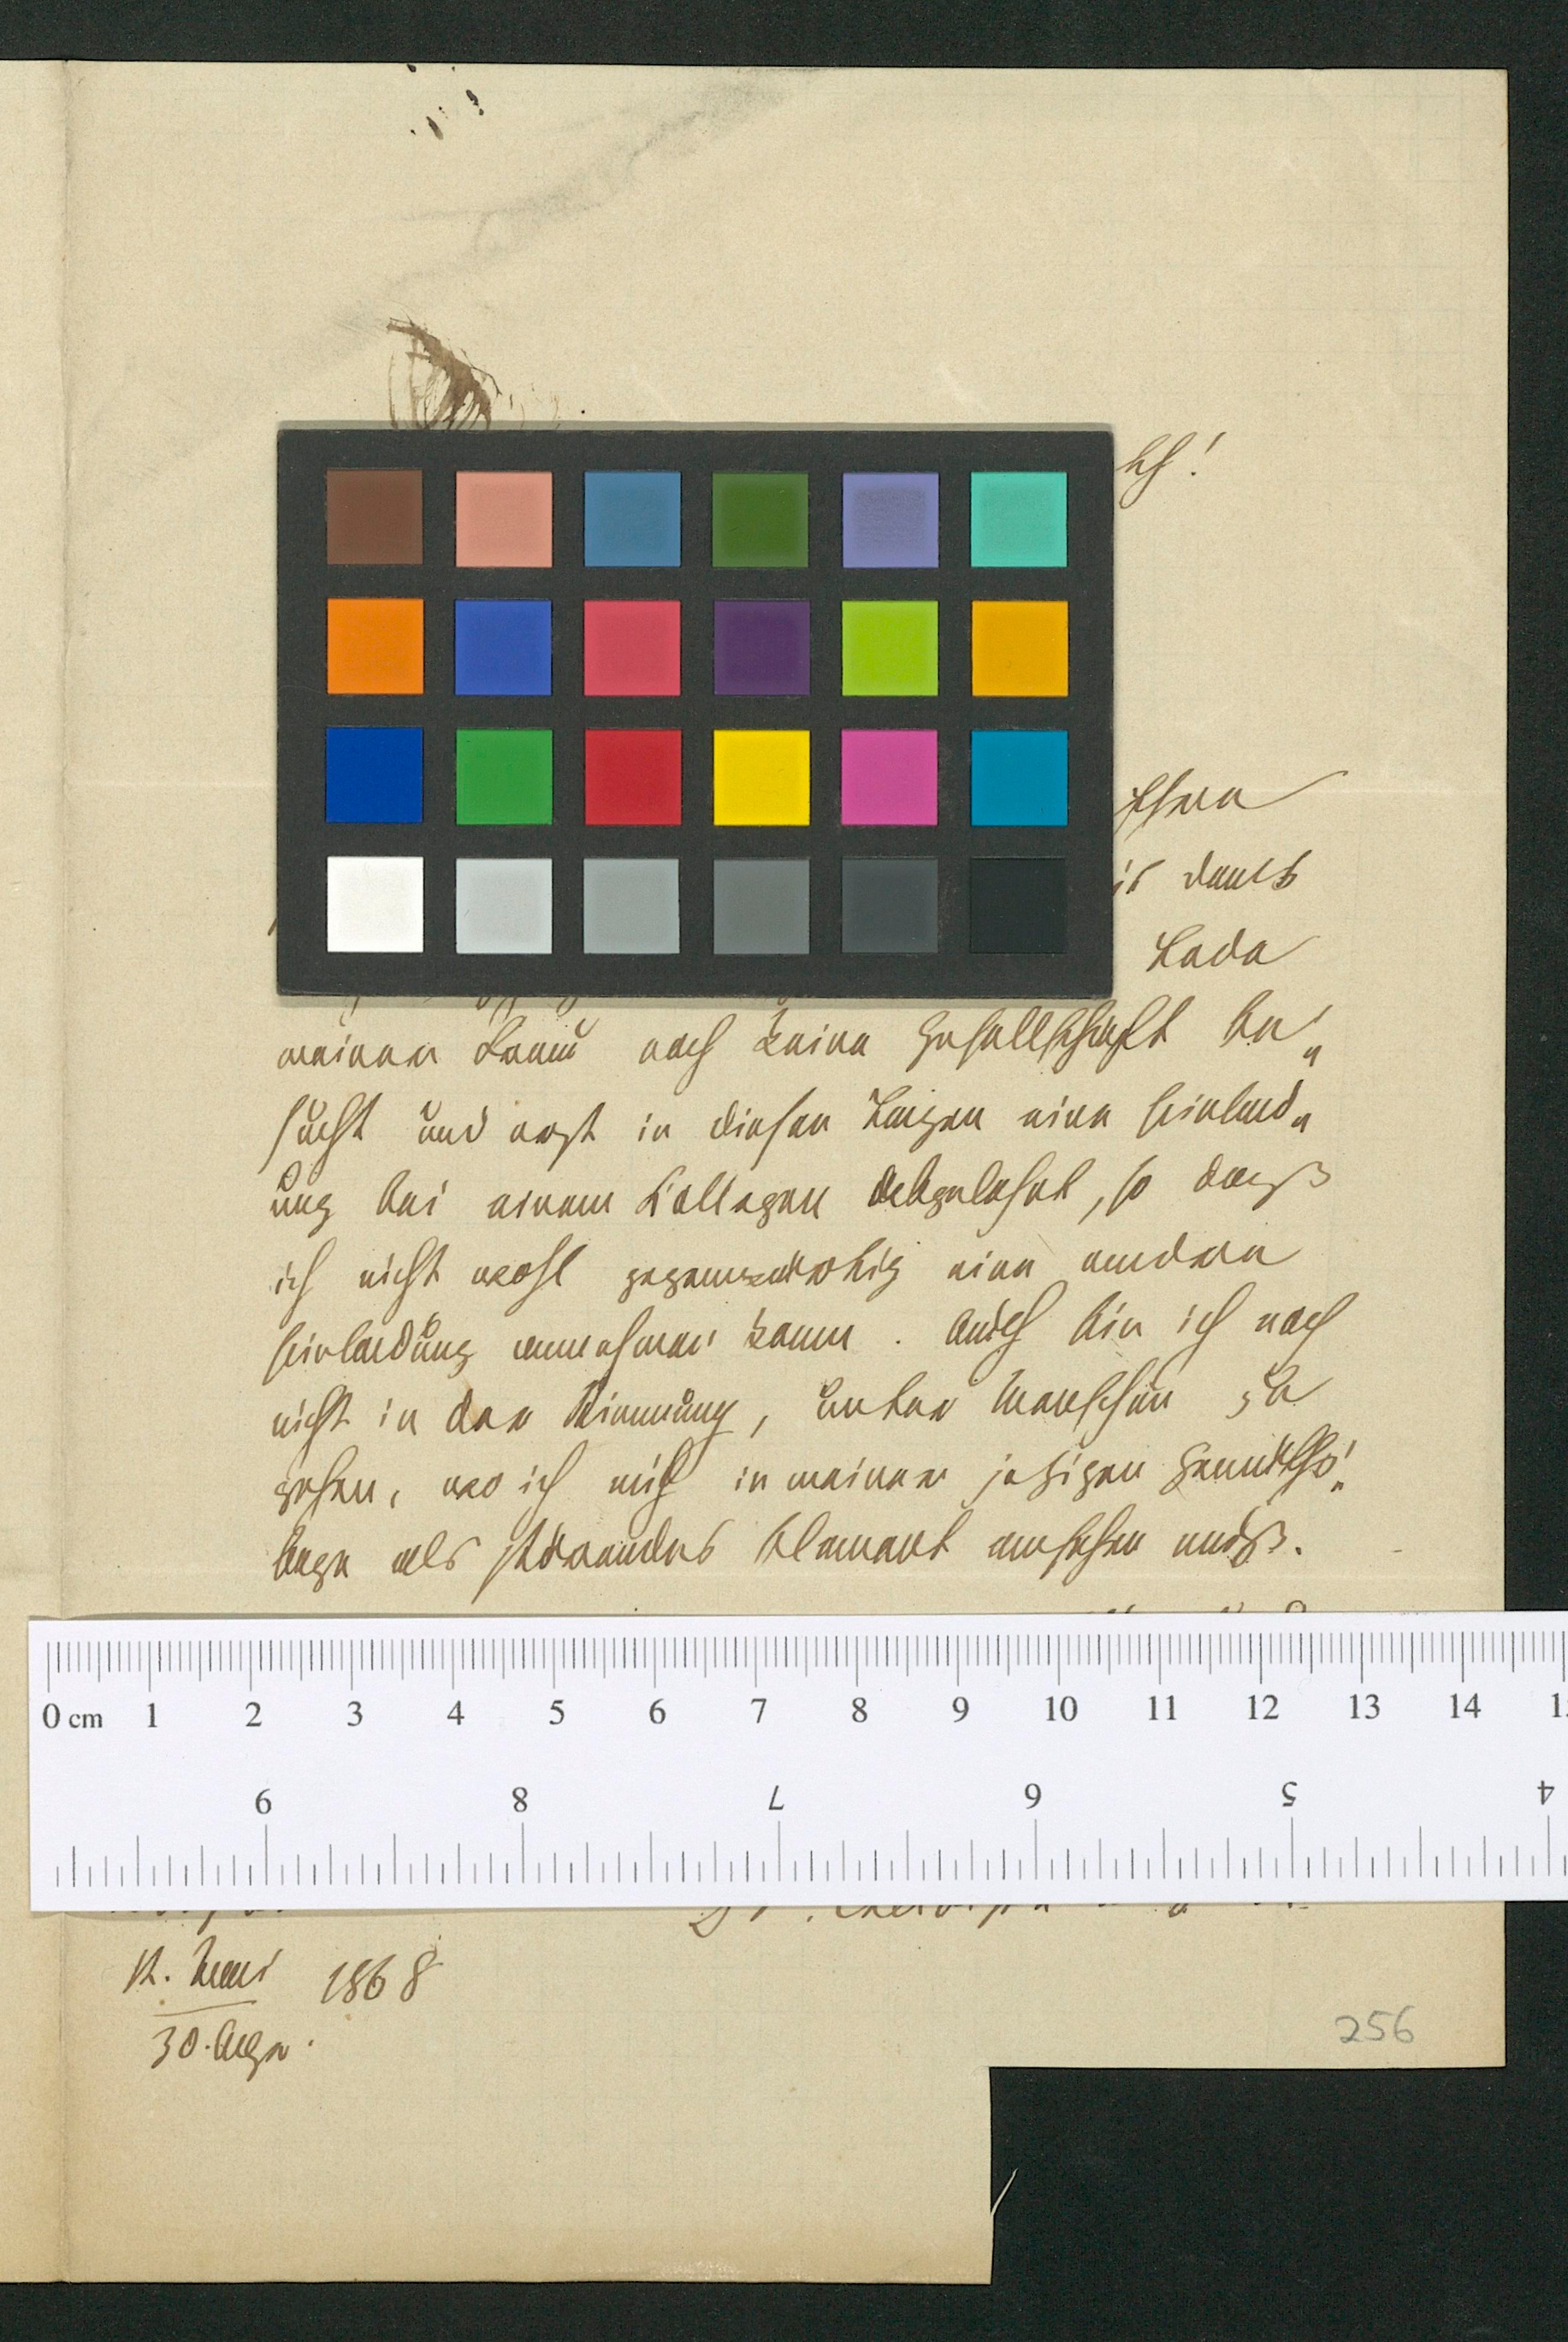 ch!
Ihren
dank
Tode
meiner Frau noch keine Gesellschaft be„
sucht und erst in diesen Tagen eine Einlad„
ung bei einem Collegen abgelehnt, so daß
ich nicht wohl gegenwärtig eine andere
Einladung annehmen kann. Auch bin ich noch
nicht in der Stimmung, unter Menschen zu
gehen, wo ich mich in meiner jetzigen Gemüths„
lage als störendes Element ansehen muß.
0 cm 1 2 3 4 5 6 7 8 9 10 11 12 13 14
9 8 7 6 5 4
12. Mai 1868
30. Apr.
256